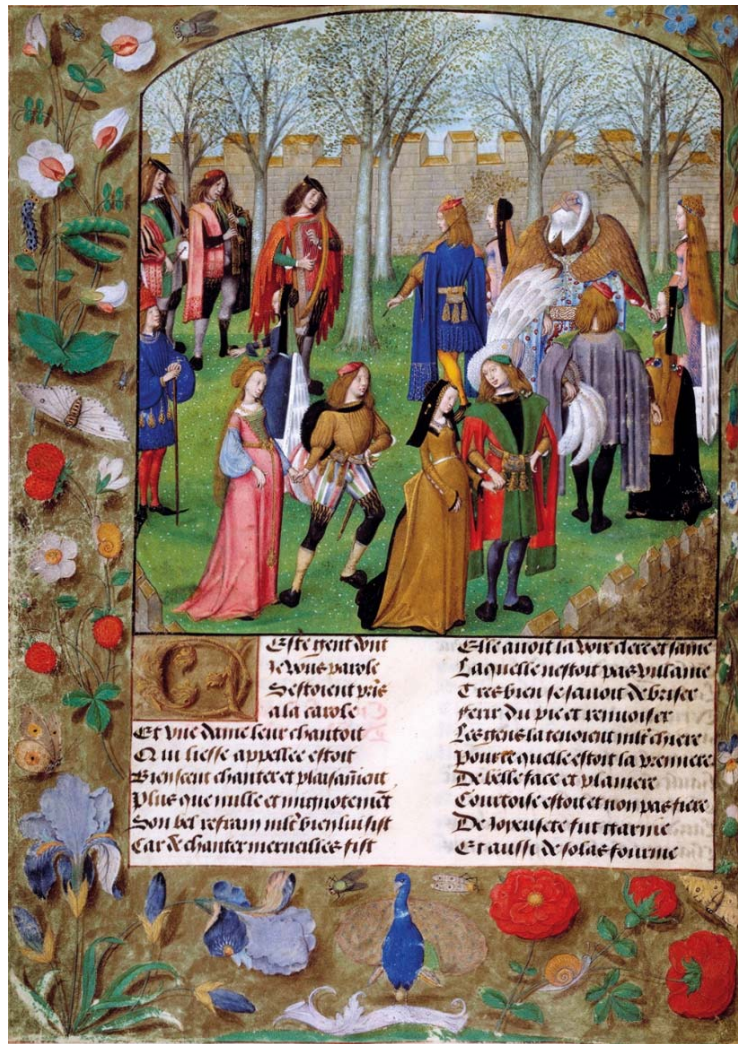 Ceste gent dont
Je vous parole
Sestoient pris
a la carole
Et vne dame leur chantoit
Qui liesse appellee estoit
Bien sceut chanter et plaisament
Plus que nulle et mignotemet
Son bel refrain mlt bien lui sist
Car de chanter merueilles fist
Elle auoit la voix clere et saine
Laquelle nestoit pas villaine
Tres bien se sauoit de briser
ferir du pie et renuoiser
Les gens la tenoient mlt chiere
Pource quelle estoit la premiere
De belle face et planiere
Courtoise estoit et non pas fiere
De Joyeusete fut garnie
Et aussi de solas fournie